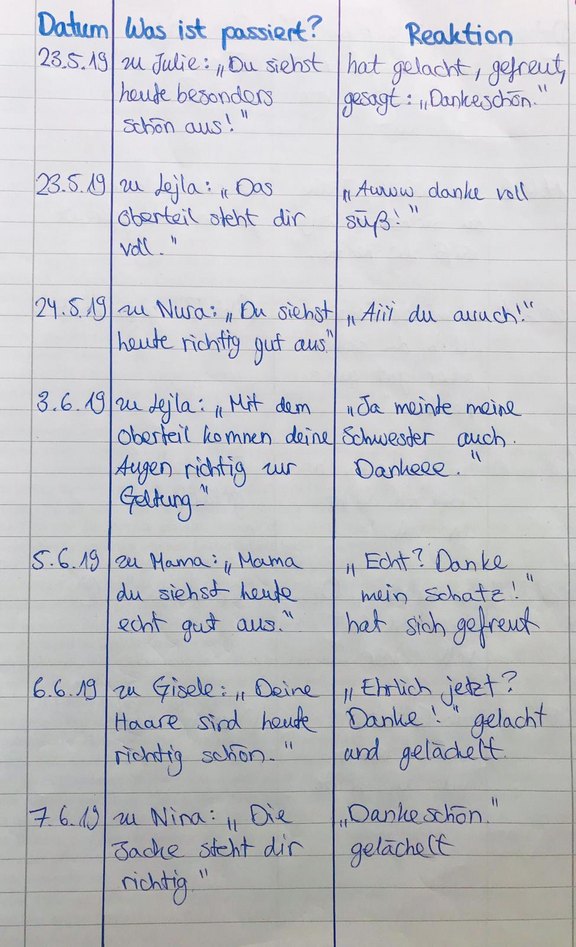 Datum Was ist passiert? Reaktion
23.5.19 zu Julie: „Du siehst hat gelacht, gefreut,
heute besonders gesagt: „Dankeschön."
schön aus!"
23.5.19 zu Lejla: „Das „Awww danke voll
Oberteil steht dir süß!"
voll."
24.5.19 zu Nura: „Du siehst „Aiii du auuch!"
heute richtig gut aus"
3.6.19 zu Lejla: „Mit dem „Ja meinte meine
Oberteil kommen deine Schwester auch.
Augen richtig zur Dankeee."
Geltung."
5.6.19 zu Mama: „Mama „Echt? Danke
du siehst heute mein Schatz!"
echt gut aus." hat sich gefreut
6.6.19 zu Gisele: „Deine „Ehrlich jetzt?
Haare sind heute Danke!" gelacht
richtig schön." und gelächelt.
7.6.19 zu Nina: „Die „Dankeschön."
Jacke steht dir gelächelt
richtig"